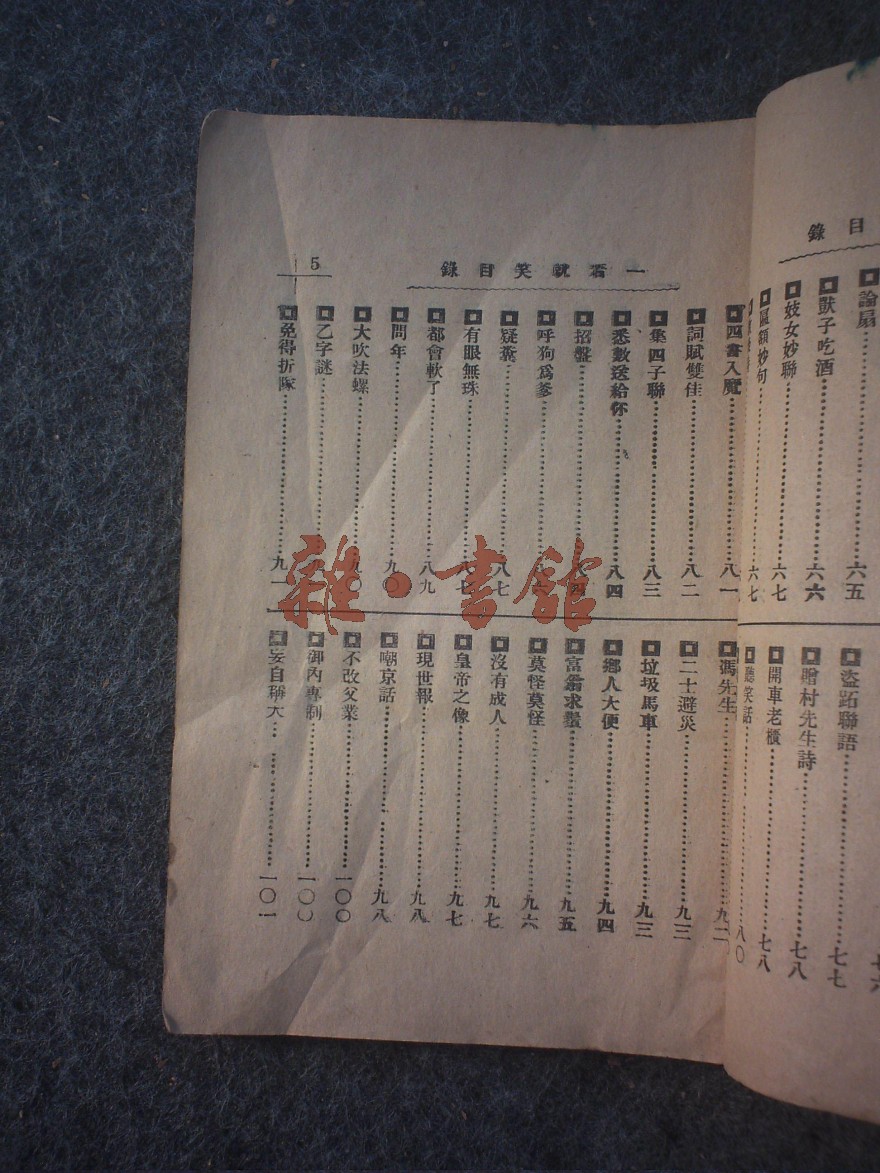 目錄
論扇……六五
獃子吃酒……六六
妓女妙聯……六七
匾額妙句……六七
盜跖聯語……七七
贈村先生詩……七八
開車老櫃……七八
聽笑話……八〇
一看就笑目錄
5
四書入魔……八一
詞賦雙佳……八二
集四子聯……八三
悉數送給你……八四
招盤
呼狗爲爹
疑糞……八七
有眼無珠……八七
都會軟了……八九
問年……九〇
大吹法螺……九〇
乙字謎
免得折隊……九一
馮先生……九二
二士避災……九三
垃圾馬車……九三
鄉人大便……九四
富翁求鬚……九五
莫怪莫怪……九六
沒有成人……九七
皇帝之像……九七
現世報……九八
嘲京話……九八
不改父業……一〇〇
御內專制……一〇〇
妄自稱大……一〇一
雜·書館